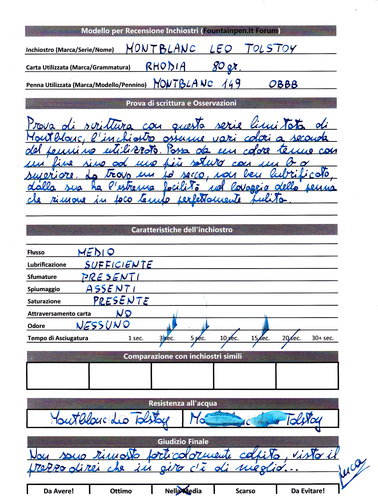 Modello per Recensione Inchiostri (Fountainpen.it Forum)
Inchiostro (Marca/Serie/Nome) MONTBLANC LEO TOLSTOY
Carta Utilizzata (Marca/Grammatura) RHODIA 80 gr.
Penna Utilizzata (Marca/Modello/Pennino) MONTBLANC 149 OBBB
Prova di scrittura e Osservazioni
Prova di scrittura con questa serie limitata di
Montblanc, l'inchiostro assume vari colori a seconda
del pennino utilizzato. Passa da un colore tenue con
un fine sino ad uno più saturo con un B o
superiore. Lo trovo un pò secco, non ben lubrificato,
dalla sua ha l'estrema facilità nel lavaggio della penna
che rimane in poco tempo perfettamente pulita.
Caratteristiche dell'inchiostro
Flusso MEDIO
Lubrificazione SUFFICIENTE
Sfumature PRESENTI
Spiumaggio ASSENTI
Saturazione PRESENTE
Attraversamento carta NO
Odore NESSUNO
Tempo di Asciugatura 1 sec. 3 sec. 5 sec. 10 sec. 15 sec. 20 sec. 30+ sec.
Comparazione con inchiostri simili
Resistenza all'acqua
Montblanc Leo Tolstoy Mo blanc Leo Tolstoy
Giudizio Finale
Non sono rimasto particolarmente colpito, visto il
prezzo direi che in giro c'è di meglio...
Luca
Da Avere! Ottimo Nella Media Scarso Da Evitare!